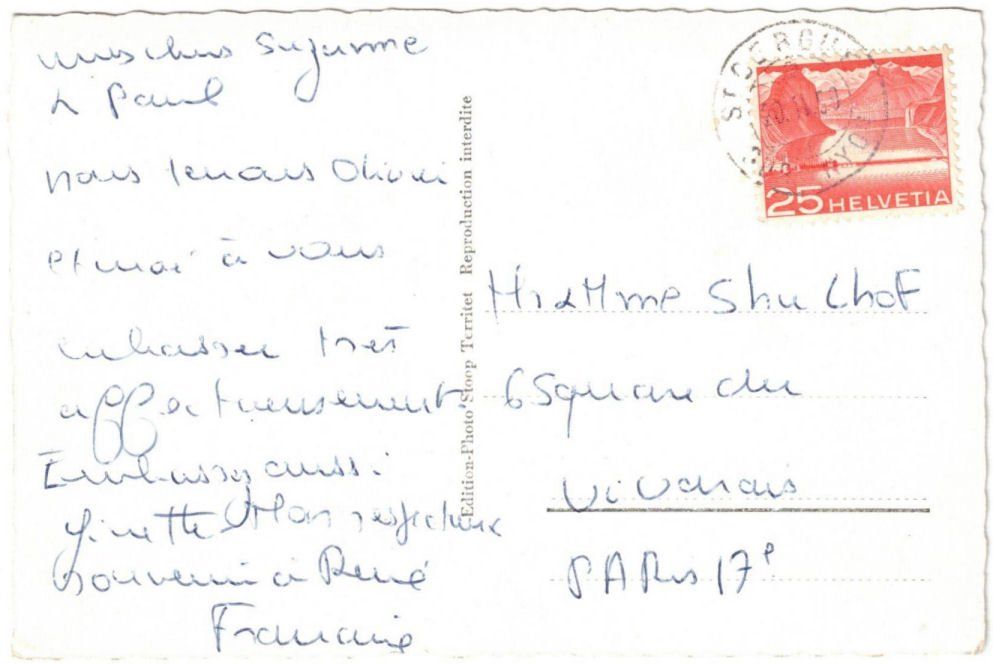 mes chers Suzanne
& Paul
nous tenons Olivier
et moi à vous
embrasser très
affectueusement.
Embrassez aussi
Ginette Mon respectueux
souvenir à René
Francine
Edition-Photo Stoop Territet Reproduction interdite
ST. CERGUE
25 HELVETIA
Mr & Mme Shulhof
6 Square du
Vivarais
PARIS 17e